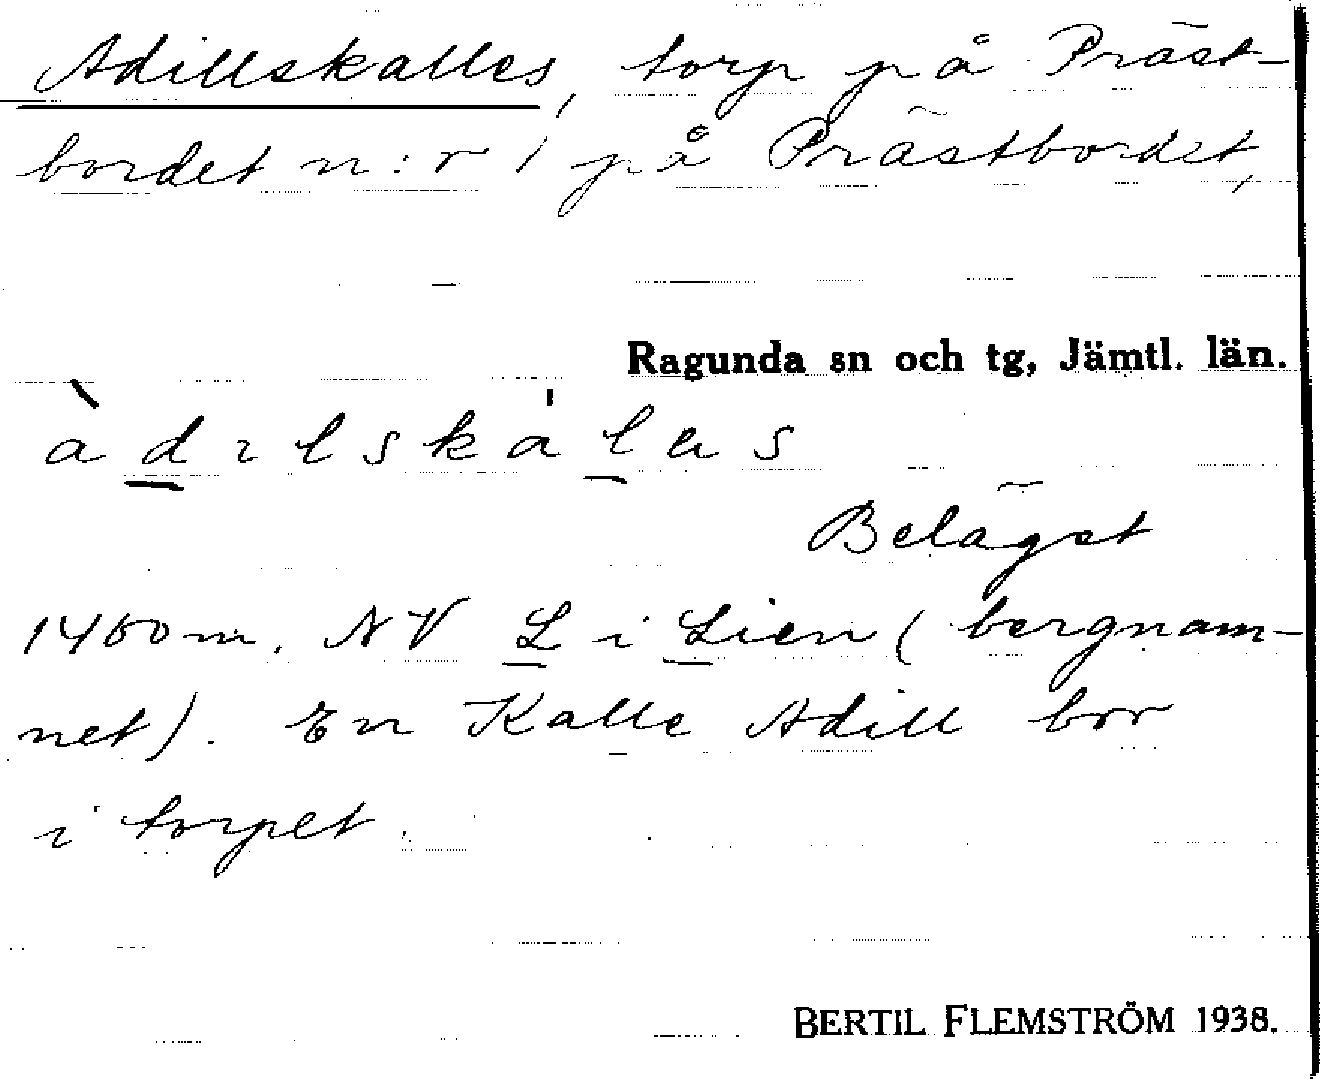 Adillskalles, torp på Präst-
bordet n:r 1 på Prästbordet,
Ragunda sn och tg, Jämtl. län.
àdılskàlas
Beläget
1460 m. NV L i Lien (bergnam-
net). En Kalle Adill bor
i torpet.
BERTIL FLEMSTRÖM 1938.